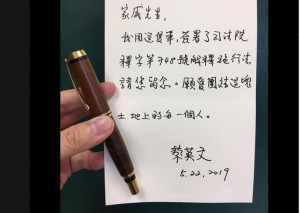 家威先生,
我用這隻筆,簽署了司法院
釋字第748號解釋施行法
請您留念。願愛團結這塊
土地上的每一個人。
蔡英文
5.22.2019